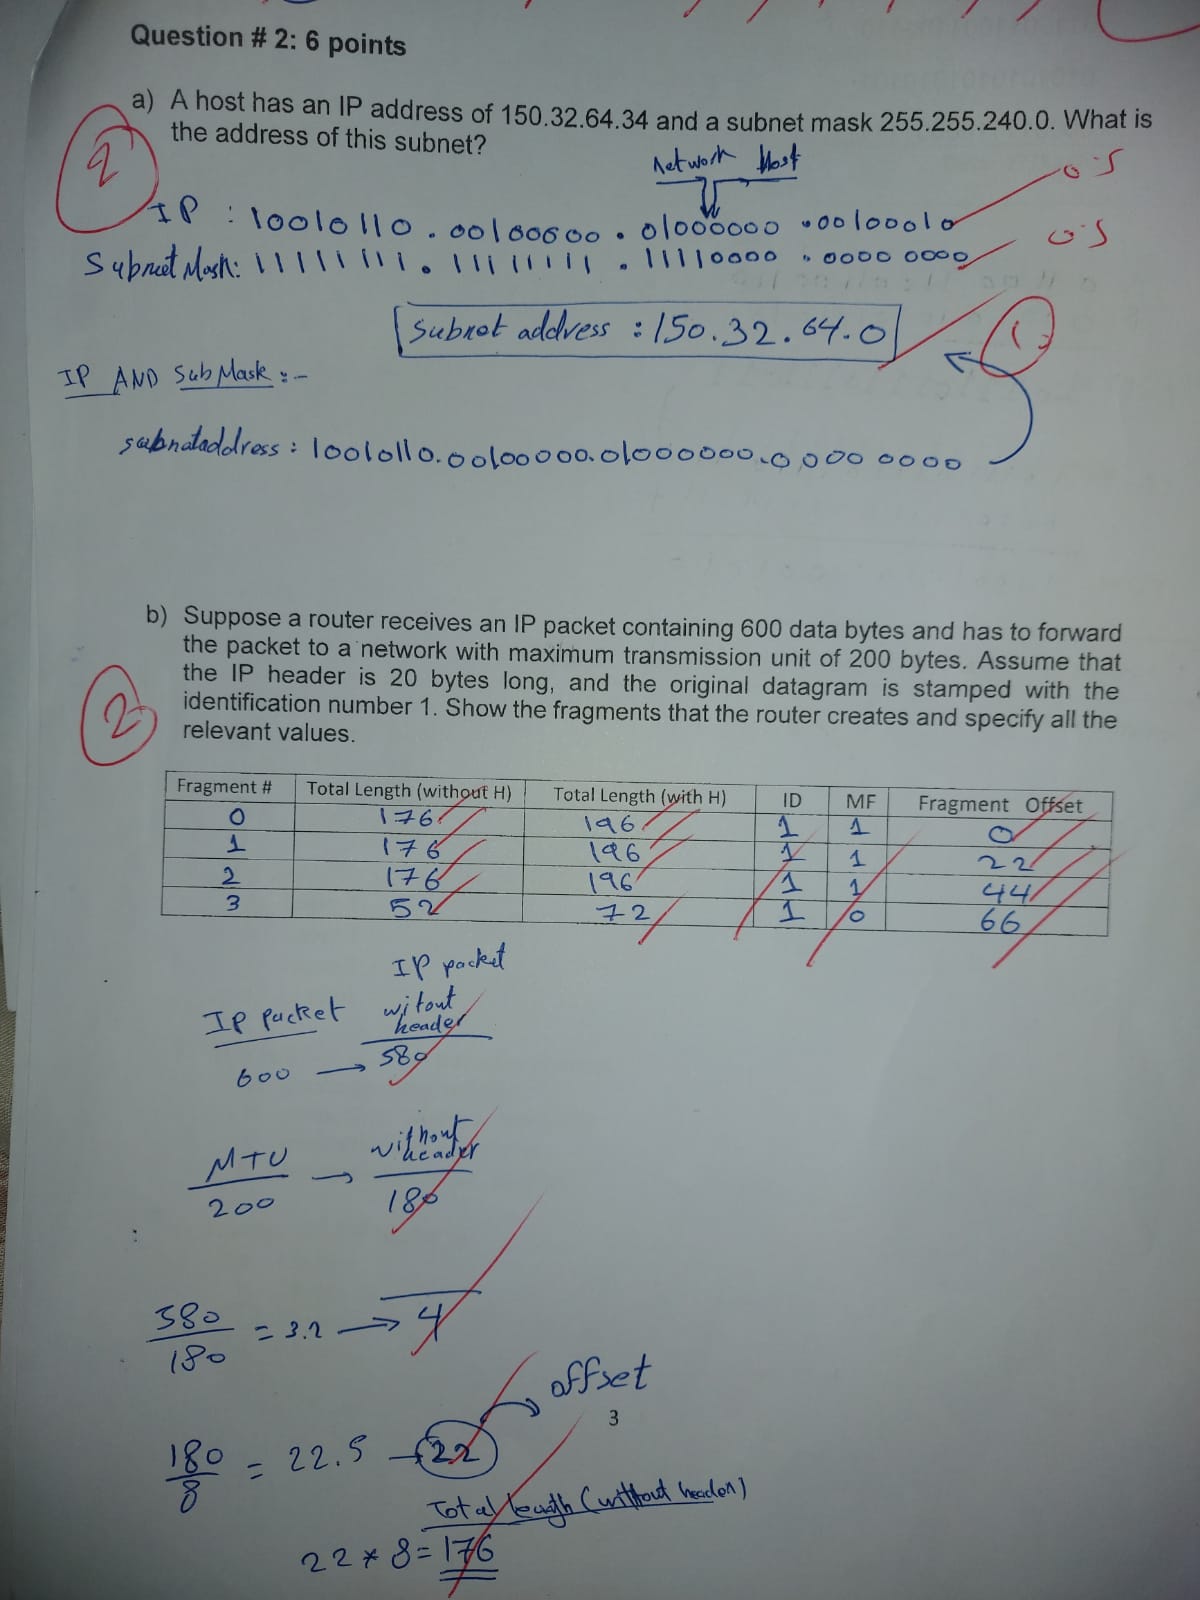 Question # 2: 6 points
a) A host has an IP address of 150.32.64.34 and a subnet mask 255.255.240.0. What is
the address of this subnet?
2
Network Host
0.5
IP : 10010110 . 00100000 . 01000000 . 00100010
0.5
Subnet Mask: 11111111 . 11111111 . 11110000 . 0000 0000
subnet address : 150.32.64.0
1
IP AND Sub Mask :-
subnetaddress : 10010110.00100000.01000000.0000 0000
b) Suppose a router receives an IP packet containing 600 data bytes and has to forward
the packet to a network with maximum transmission unit of 200 bytes. Assume that
the IP header is 20 bytes long, and the original datagram is stamped with the
identification number 1. Show the fragments that the router creates and specify all the
relevant values.
2
Fragment # Total Length (without H) Total Length (with H) ID MF Fragment Offset
0 176 196 1 1 0
1 176 196 1 1 22
2 176 196 1 1 44
3 52 72 1 0 66
IP packet
IP packet witout
header
600 → 580
MTU → without
header
200 180
580
180 = 3.2 → 4
offset
3
180
8 = 22.5 → 22
Total length (without header)
22 * 8 = 176